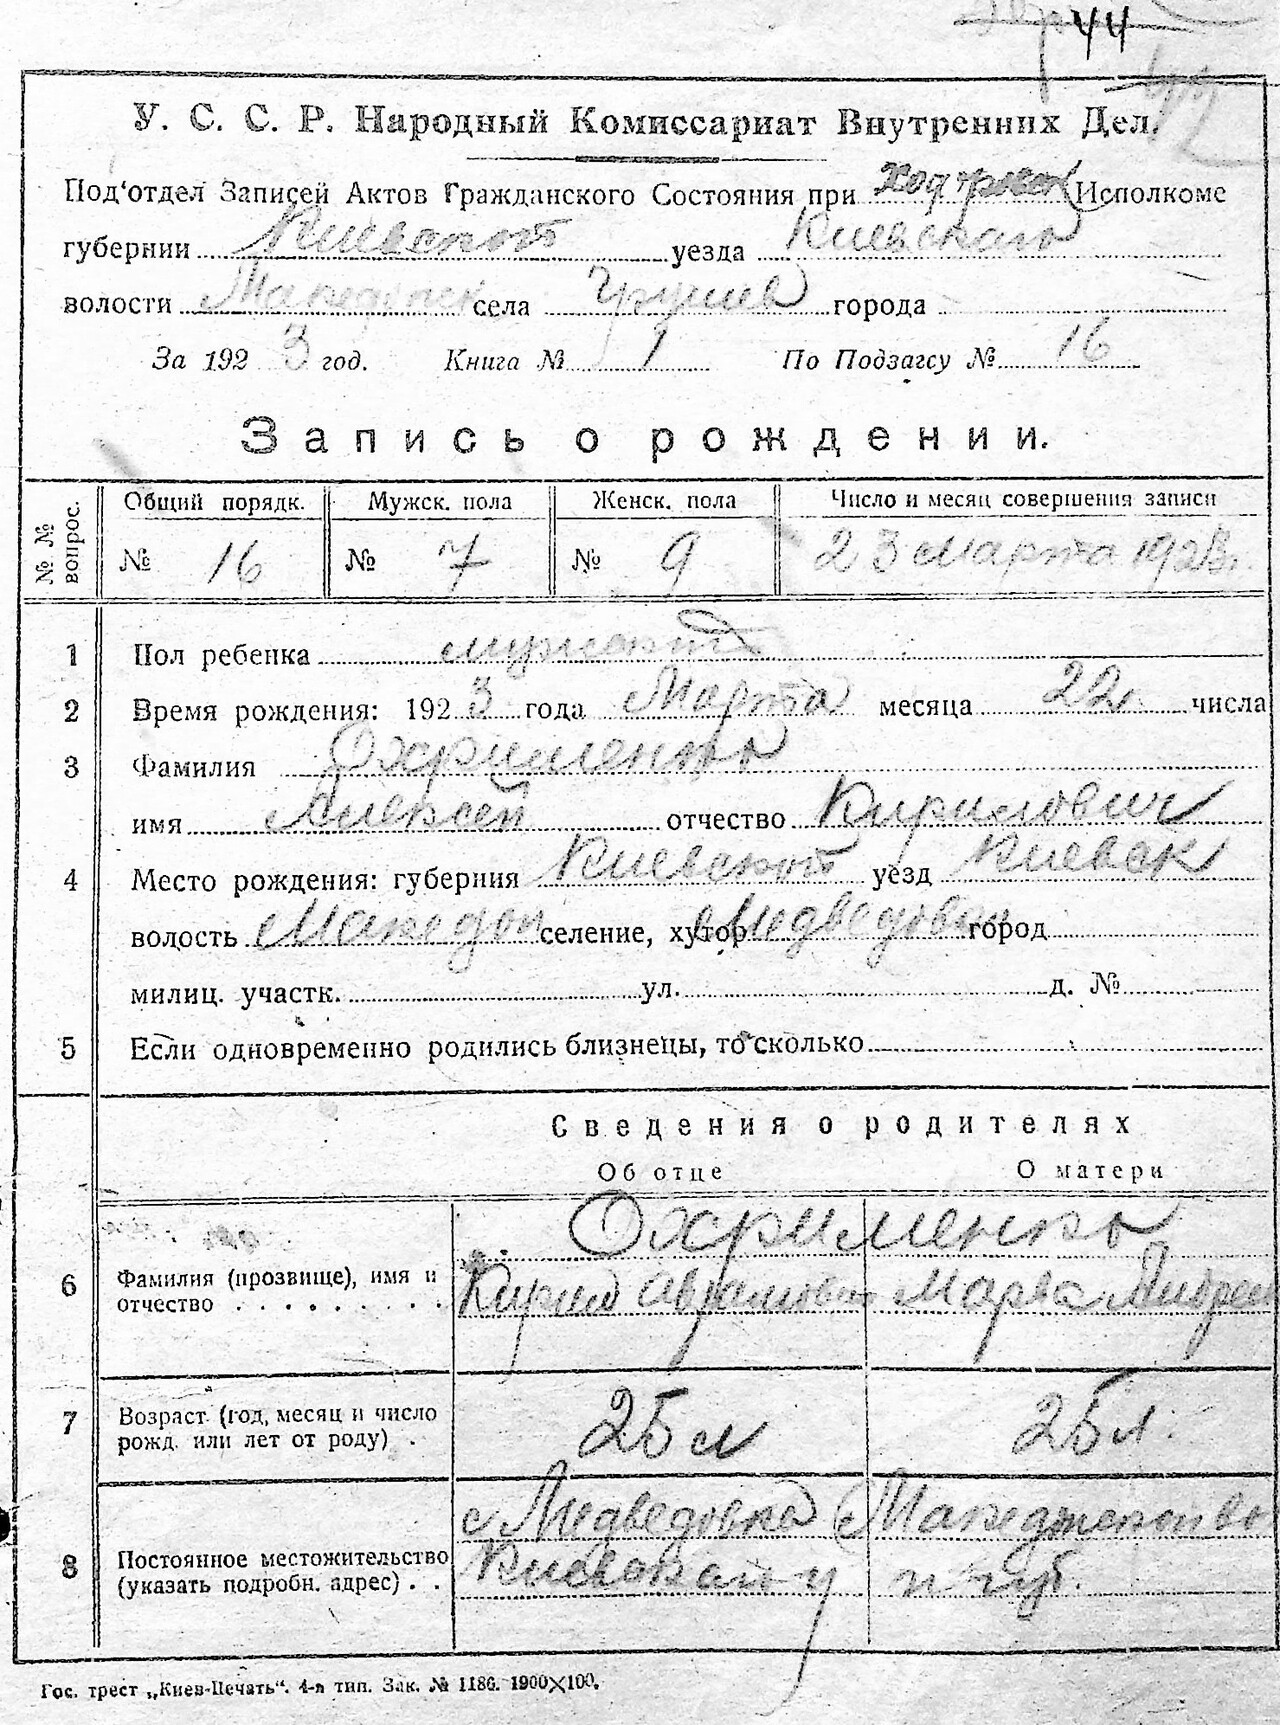 44
У. С. С. Р. Народный Комиссариат Внутренних Дел.
Под'отдел Записей Актов Гражданского Состояния при Исполкоме
губернии Киевской уезда Киевскаго
волости села Грушев города
За 1923 год. Книга № 1 По Подзагсу № 16
Запись о рождении.
№ № вопрос.
Общий порядк. Мужск. пола Женск. пола Число и месяц совершения записи
№ 16 № 7 № 9 23 марта 1923 г.
1 Пол ребенка мужской
2 Время рождения: 1923 года Марта месяца 22 числа
3 Фамилия Охрименко
имя Алексей отчество Кирилович
4 Место рождения: губерния Киевской уезд Киевск
волость Македон селение, хутор Медведовка город
милиц. участк. ул. д. №
5 Если одновременно родились близнецы, то сколько
Сведения о родителях
Об отце О матери
Охрименко
6 Фамилия (прозвище), имя и отчество Кирил Аврамович Марфа Андреев
7 Возраст (год, месяц и число рожд. или лет от роду) 25 л 25 л.
с Медведовка Македонской во
8 Постоянное местожительство (указать подробн. адрес) Киевской у и губ.
Гос. трест „Киев-Печать“. 4-я тип. Зак. № 1186. 1900×100.